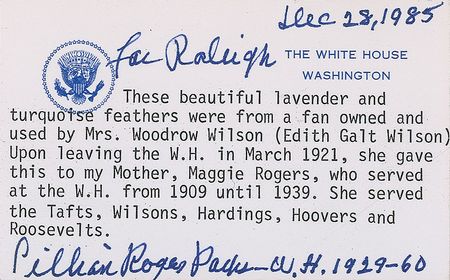 Dec 28, 1985
For Raleigh
THE WHITE HOUSE
WASHINGTON
These beautiful lavender and
turquoise feathers were from a fan owned and
used by Mrs. Woodrow Wilson (Edith Galt Wilson)
Upon leaving the W.H. in March 1921, she gave
this to my Mother, Maggie Rogers, who served
at the W.H. from 1909 until 1939. She served
the Tafts, Wilsons, Hardings, Hoovers and
Roosevelts.
Lillian Rogers Parks - W.H. 1929-60